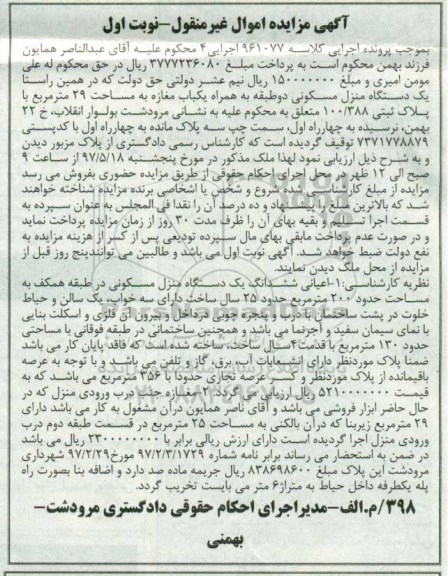 آگهی مزایده اموال غیرمنقول-نوبت اول
بموجب پرونده اجرایی کلاسه ۹۶۱۰۷۷ اجرایی۴ محکوم علیه آقای عبدالناصر همایون
فرزند بهمن محکوم است به پرداخت مبلغ ۳۷۷۷۲۳۶۰۸۰ ریال در حق محکوم له علی
مومن امیری و مبلغ ۱۵۰۰۰۰۰۰۰ ریال نیم عشر دولتی حق دولت که در همین راستا
یک دستگاه منزل مسکونی دوطبقه به همراه یکباب مغازه به مساحت ۲۹ مترمربع با
پلاک ثبتی ۱۰۰/۳۸۸ متعلق به محکوم علیه به نشانی مرودشت بولوار انقلاب، خ ۲۲
بهمن، نرسیده به چهارراه اول، سمت چپ سه پلاک مانده به چهارراه اول با کدپستی
۷۳۷۱۷۷۸۸۷۹ توقیف گردیده است که کارشناس رسمی دادگستری از پلاک مزبور دیدن
و به شرح ذیل ارزیابی نمود لهذا ملک مذکور در مورخ پنجشنبه ۹۷/۵/۱۸ از ساعت ۹
صبح الی ۱۲ ظهر در محل اجرای احکام حقوقی از طریق مزایده حضوری بفروش می رسد
مزایده از مبلغ کارشناسی شده شروع و شخص یا اشخاصی برنده مزایده شناخته خواهند
شد که بالاترین مبلغ را پیشنهاد و ده درصد آن را نقدا فی المجلس به عنوان سپرده به
قسمت اجرا تسلیم و بقیه بهای آن را ظرف مدت ۳۰ روز از زمان مزایده پرداخت نماید
و در صورت عدم پرداخت مابقی بهای مال سپرده تودیعی پس از کسر از هزینه مزایده به
نفع دولت ضبط خواهد شد. آگهی نوبت اول می باشد و طالبین می توانند پنج روز قبل از
مزایده از محل ملک دیدن نمایند.
نظریه کارشناسی:۱-اعیانی ششدانگ یک دستگاه منزل مسکونی در طبقه همکف به
مساحت حدود ۲۰۰ مترمربع حدود ۲۵ سال ساخت دارای سه خواب، یک سالن و حیاط
خلوت در پشت ساختمان با درب و پنجره چوبی درداخل و بیرون آن فلزی و اسکلت بنایی
با نمای سیمان سفید و آجرنما می باشد و همچنین ساختمانی در طبقه فوقانی با مساحتی
حدود ۱۳۰ مترمربع با قدمت ۴سال ساخت، ساخته شده است که فاقد پایان کار می باشد
ضمنا پلاک موردنظر دارای انشعابات آب، برق، گاز و تلفن می باشد و با توجه به عرصه
باقیمانده از پلاک موردنظر و کسر عرصه تجاری حدودا با ۳۵۶ مترمربع می باشد که به
قیمت ۵۲۱۰۰۰۰۰۰۰ ریال ارزیابی می گردد ۲- مغازه جنب درب ورودی منزل که در
حال حاضر ابزار فروشی می باشد و آقای ناصر همایون درآن مشغول به کار می باشد دارای
۲۹ مترمربع زیربنا که درآن بالکنی به مساحت ۲۵ مترمربع در قسمت طبقه دوم درب
ورودی منزل اجرا گردیده است دارای ارزش ریالی برابر با ۲۳۰۰۰۰۰۰۰۰ ریال می باشد
در ضمن به استحضار می رساند برابر نامه شماره ۹۷/۲/۳/۱۷۲۹ مورخ ۹۷/۲/۲۹ شهرداری
مرودشت این پلاک مبلغ ۸۳۸۶۹۸۶۰۰ ریال جریمه ماده صد دارد و اضافه بنا بصورت راه
پله یکطرفه داخل حیاط به متراژ۶ متر می بایست تخریب گردد.
۳۹۸/م.الف-مدیراجرای احکام حقوقی دادگستری مرودشت-
بهمنی